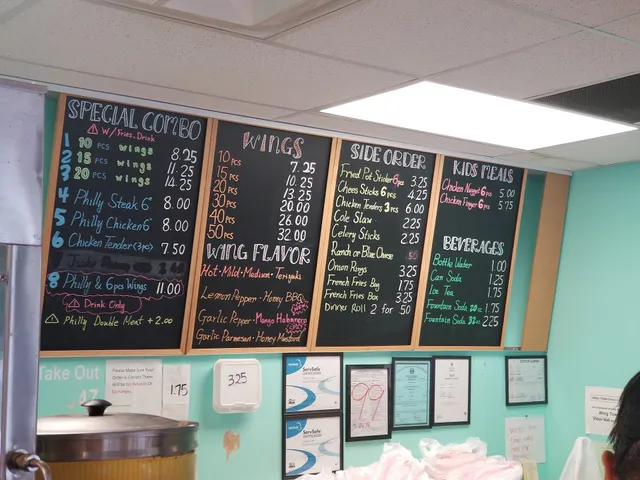 SPECIAL COMBO
W/ Fries. Drink
1 10 PCS wings 8.25
2 15 PCS wings 11.25
3 20 PCS wings 14.25
4 Philly Steak 6" 8.00
5 Philly Chicken 6" 8.00
6 Chicken Tender (3pcs) 7.50
8 Philly & 6pcs Wings 11.00
Drink Only
Philly Double Meat +2.00
WINGS
10 PCS 7.25
15 PCS 10.25
20 PCS 13.25
30 PCS 20.00
40 PCS 26.00
50 PCS 32.00
WING FLAVOR
Hot · Mild · Medium · Teriyaki
Lemon Pepper · Honey BBQ
Garlic Pepper · Mango Habanero
Garlic Parmesan · Honey Mustard
SIDE ORDER
Fried Pot Sticker 6pcs 3.25
Chees Sticks 6pcs 4.25
Chicken Tenders 3pcs 6.00
Cole Slaw 2.25
Celery Sticks 2.25
Ranch or Blue Cheese .50
Onion Rings 3.25
French Fries Bag 1.75
French Fries Box 3.25
Dinner Roll 2 for 50
KIDS MEALS
Chicken Nugget 6pcs 5.00
Chicken Finger 6pcs 5.75
BEVERAGES
Bottle Water 1.00
Can Soda 1.25
Ice Tea 1.75
Fountain Soda 20 oz 1.75
Fountain Soda 32 oz 2.25
Take Out
47
Please Make Sure Your
Order is Correct There
Will be No Refund or
Exchanges.
1.75
3.25
ServSafe
ServSafe
99